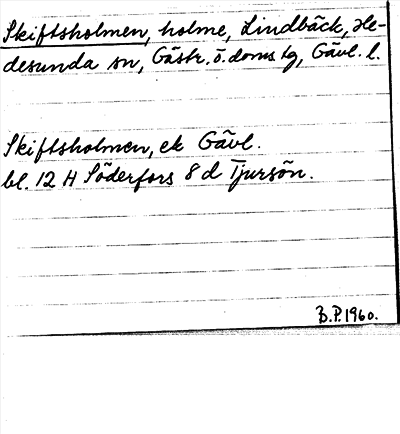 Skiftsholmen, holme, Lindbäck, He-
desunda sn, Gästr. ö. doms. tg, Gävl. l.
Skiftsholmen, ek Gävl.
bl. 12 H Söderfors 8 d Tjursön.
B.P. 1960.